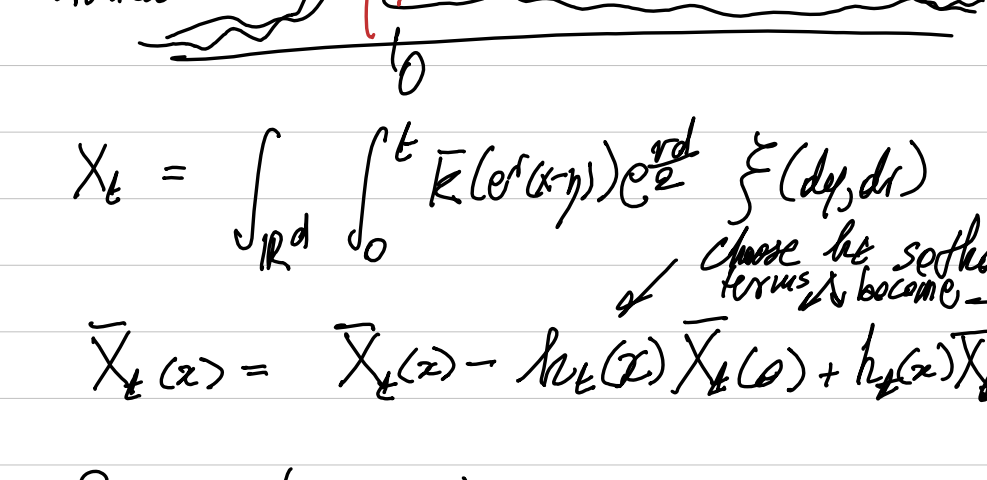 0
X_t = ∫_{ℝ^d} ∫_0^t k̄(e^r(x-η)) e^{rd/2} ξ(dy, dr)
choose h_t so th
terms ↙↘ become
X̄_t(x) = X̄_t(x) - h_t(x) X̄_t(0) + h_t(x) X̄_t